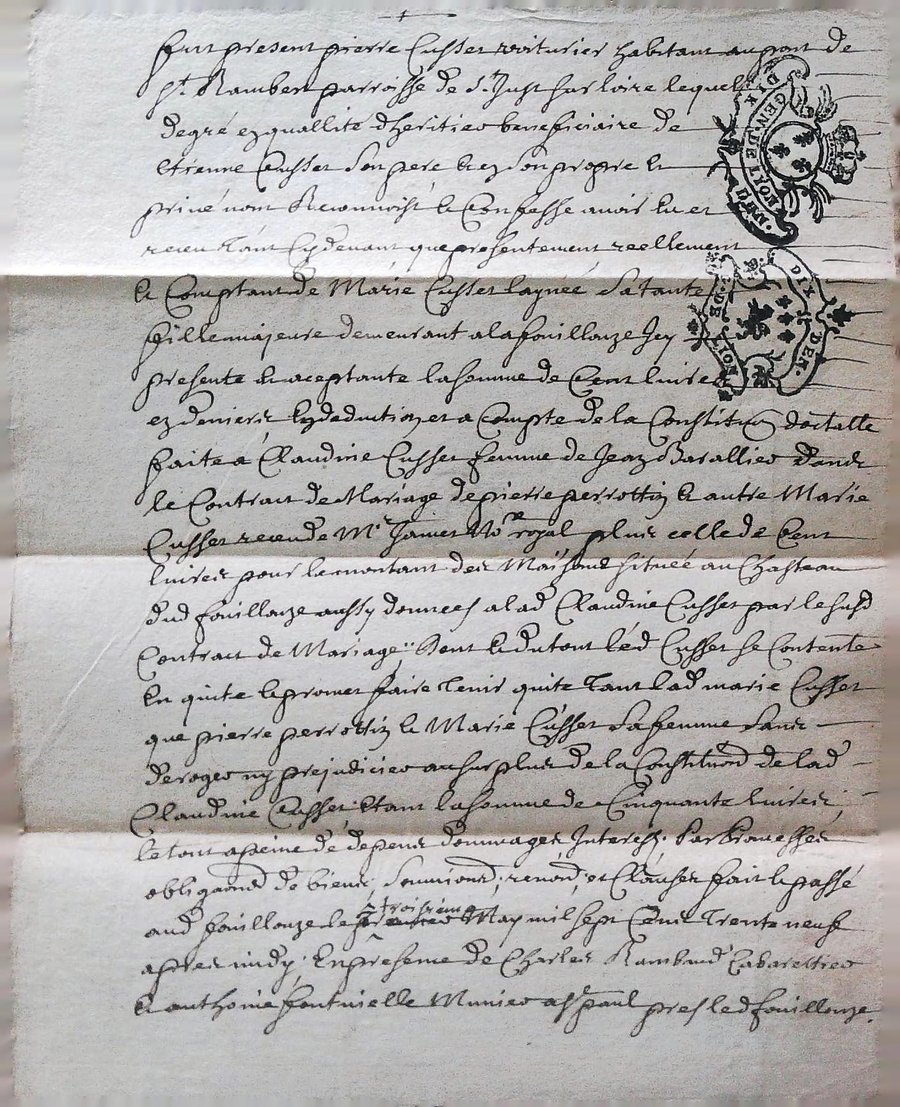 fut present pierre Cusset voiturier habitant au pont de
St. Rambert parroisse de St. Just sur loire lequel
de gré ez quallité dheritier beneficiaire de
etienne Cusset son pere et ez son propre et
privé nom Reconnoist et Confesse avoir eu et
receu tant Cy devant que presentement reellement
et Comptant de Marie Cusset laynée sa tante
fille majeure demeurant a la fouillouze Icy
presente et aceptante la somme de Cent livres
ez deniers En deduction et a Compte de la Constitu͠on doctalle
faite a Claudine Cusset femme de Jean Barallier dans
le Contract de Mariage de pierre perrottin et autre Marie
Cusset receu de Me No͠re royal plus celle de Cent
livres pour le montant des Maisons située au Chasteau
dud fouillouze aussy donnees a lad Claudine Cusset par le susd
Contract de Mariage Dont et du tout led Cusset se Contente
En quite et promet faire tenir quite tant lad marie Cusset
que pierre perrottin et Marie Cusset sa femme sans
deroger ny prejudicier au surplus de la Constituon͠ de lad
Claudine Cusset Etant la somme de Cinquante livres
le tout a peine de depens dommages Interests Par Promesses
obligaons͠ de biens, soumions͠, renons͠, et Clauses fait et passé
aud fouillouze le troisieme May mil sept Cens trente neuf
apres midy En presence de Charles Rambaud Cabarettier
et anthoine fontvielle Munier a St paul pres led fouillouze.
DIX DEN.
GEN. DE